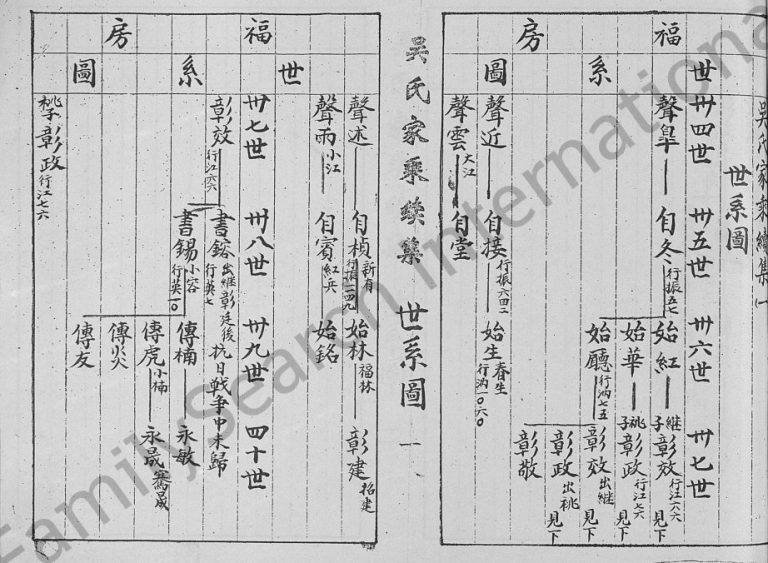 吳氏家乘續集一
世系圖
福房
世系圖
卅四世 卅五世 卅六世 卅七世
聲臯 自冬 行振五七 始紅 繼子 彰效 行江六六 見下
始華 祧子 彰政 行江七六 見下
始廳 行汭七五 彰效 出繼 見下
彰政 出祧 見下
彰敬
聲近 自接 行振六四二 始生 春生 行汭一〇六〇
聲雲 大江 自堂
吳氏家乘續集 世系圖 一
福房
世系圖
聲述 自楨 新有 行振二四九 始林 福林 彰建 招建
聲雨 小江 自賓 紅兵 始銘
卅七世 卅八世 卅九世 四十世
彰效 行江六六 書鎔 出繼彰廷後 行英七 抗日戰爭中未歸
書錫 小容 行英一〇 傳楠 永敏
傳虎 小楠 永晟 騫晟
傳炎
傳友
祧子 彰政 行江七六
FamilySearch International